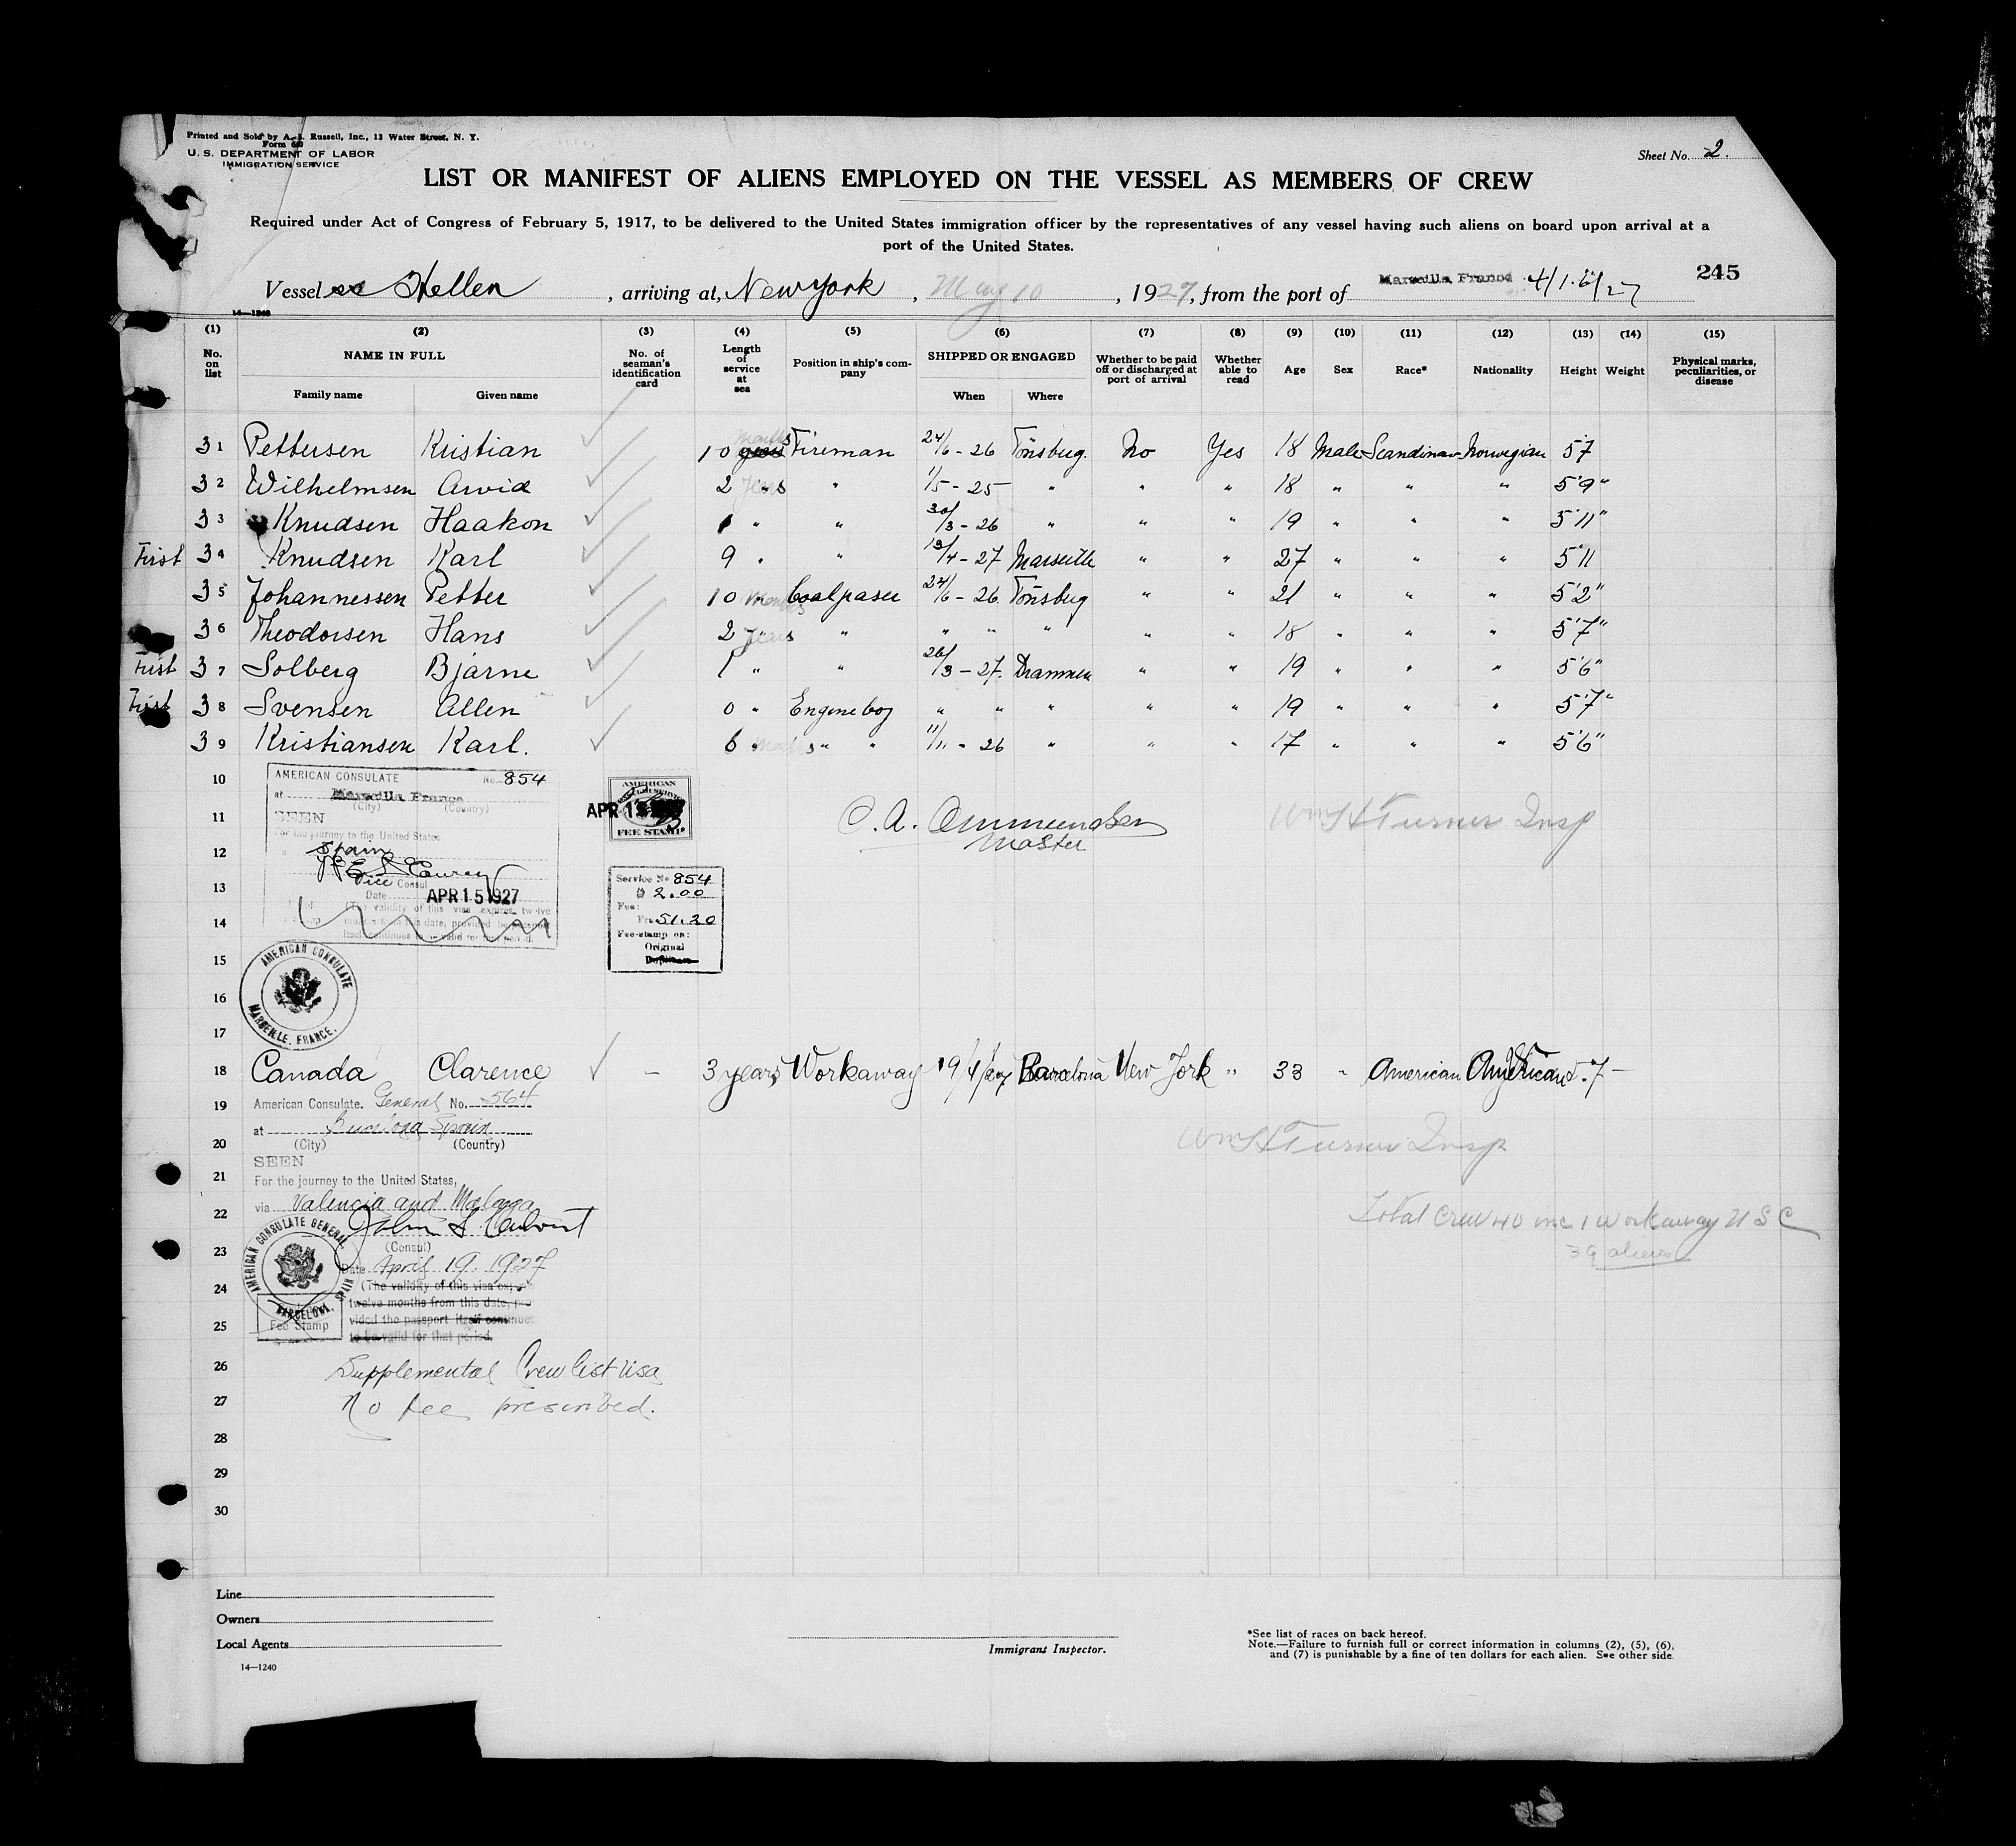 Printed and Sold by A. J. Russell, Inc., 13 Water Street, N. Y.
U. S. DEPARTMENT OF LABOR
IMMIGRATION SERVICE
Sheet No. 2.
LIST OR MANIFEST OF ALIENS EMPLOYED ON THE VESSEL AS MEMBERS OF CREW
Required under Act of Congress of February 5, 1917, to be delivered to the United States immigration officer by the representatives of any vessel having such aliens on board upon arrival at a
port of the United States.
245
Vessel ss Hellen, arriving at, New York, May 10, 1927, from the port of Marseille France
14—1240
(1) (2) (3) (4) (5) (6) (7) (8) (9) (10) (11) (12) (13) (14) (15)
No. on list NAME IN FULL Family name Given name No. of seaman's identification card Length of service at sea Position in ship's company SHIPPED OR ENGAGED When Where Whether to be paid off or discharged at port of arrival Whether able to read Age Sex Race* Nationality Height Weight Physical marks, peculiarities, or disease
31 Pettersen Kristian 10 months Fireman 24/6 - 26 Tönsberg. No Yes 18 Male Scandinav Norwegian 5'7
32 Wilhelmsen Arvid 2 years " 1/5 - 25 " " " 18 " " " 5'9"
33 Knudsen Haakon 1 " " 30/3 - 26 " " " 19 " " " 5'11"
First 34 Knudsen Karl 9 " " 13/4 - 27 Marseille " " 27 " " " 5'11
35 Johannessen Petter 10 months Coalpaser 24/6 - 26 Tönsberg " " 21 " " " 5'2"
36 Theodorsen Hans 2 years " " " " " " 18 " " " 5'7"
First 37 Solberg Bjarne 1 " " 26/3 - 27. Drammen " " 19 " " " 5'6"
First 38 Svensen Allen 0 " Engineboy " " " " " 19 " " " 5'7"
39 Kristiansen Karl. 6 months " " 11/11 - 26 " " " 17 " " " 5'6"
10
AMERICAN CONSULATE No. 854
at Marseille France
(City) (Country)
SEEN
For the journey to the United States
Spain
Vice Consul
Date APR 15 1927
AMERICAN
FEE STAMP
Service No 854
$ 2.00
Fee:
Frs 51.20
Fee-stamp on:
Original
Duplicate
C. A. Ammundsen
Master
Wm H Turner Insp
11
12
13
14
15
AMERICAN CONSULATE
MARSEILLE, FRANCE.
16
17
18 Canada Clarence — 3 years Workaway 19/4/27 Barcelona New York " 33 " American American 5-7 —
19 American Consulate. General No. 564
at Barcelona Spain
20 (City) (Country)
SEEN
21 For the journey to the United States,
via Valencia and Malaga
22
(Consul)
23 Date April 19. 1927
AMERICAN CONSULATE GENERAL
BARCELONA, SPAIN
24 (The validity of this visa expires
twelve months from this date, pro
25 vided the passport itself continues
to be valid for that period.
Fee Stamp
Wm H Turner Insp
Total Crew 40 inc 1 workaway U S C
39 aliens
26 Supplemental Crew list visa
27 No fee prescribed.
28
29
30
Line
Owners
Local Agents
14—1240
Immigrant Inspector.
*See list of races on back hereof.
Note.—Failure to furnish full or correct information in columns (2), (5), (6),
and (7) is punishable by a fine of ten dollars for each alien. See other side.